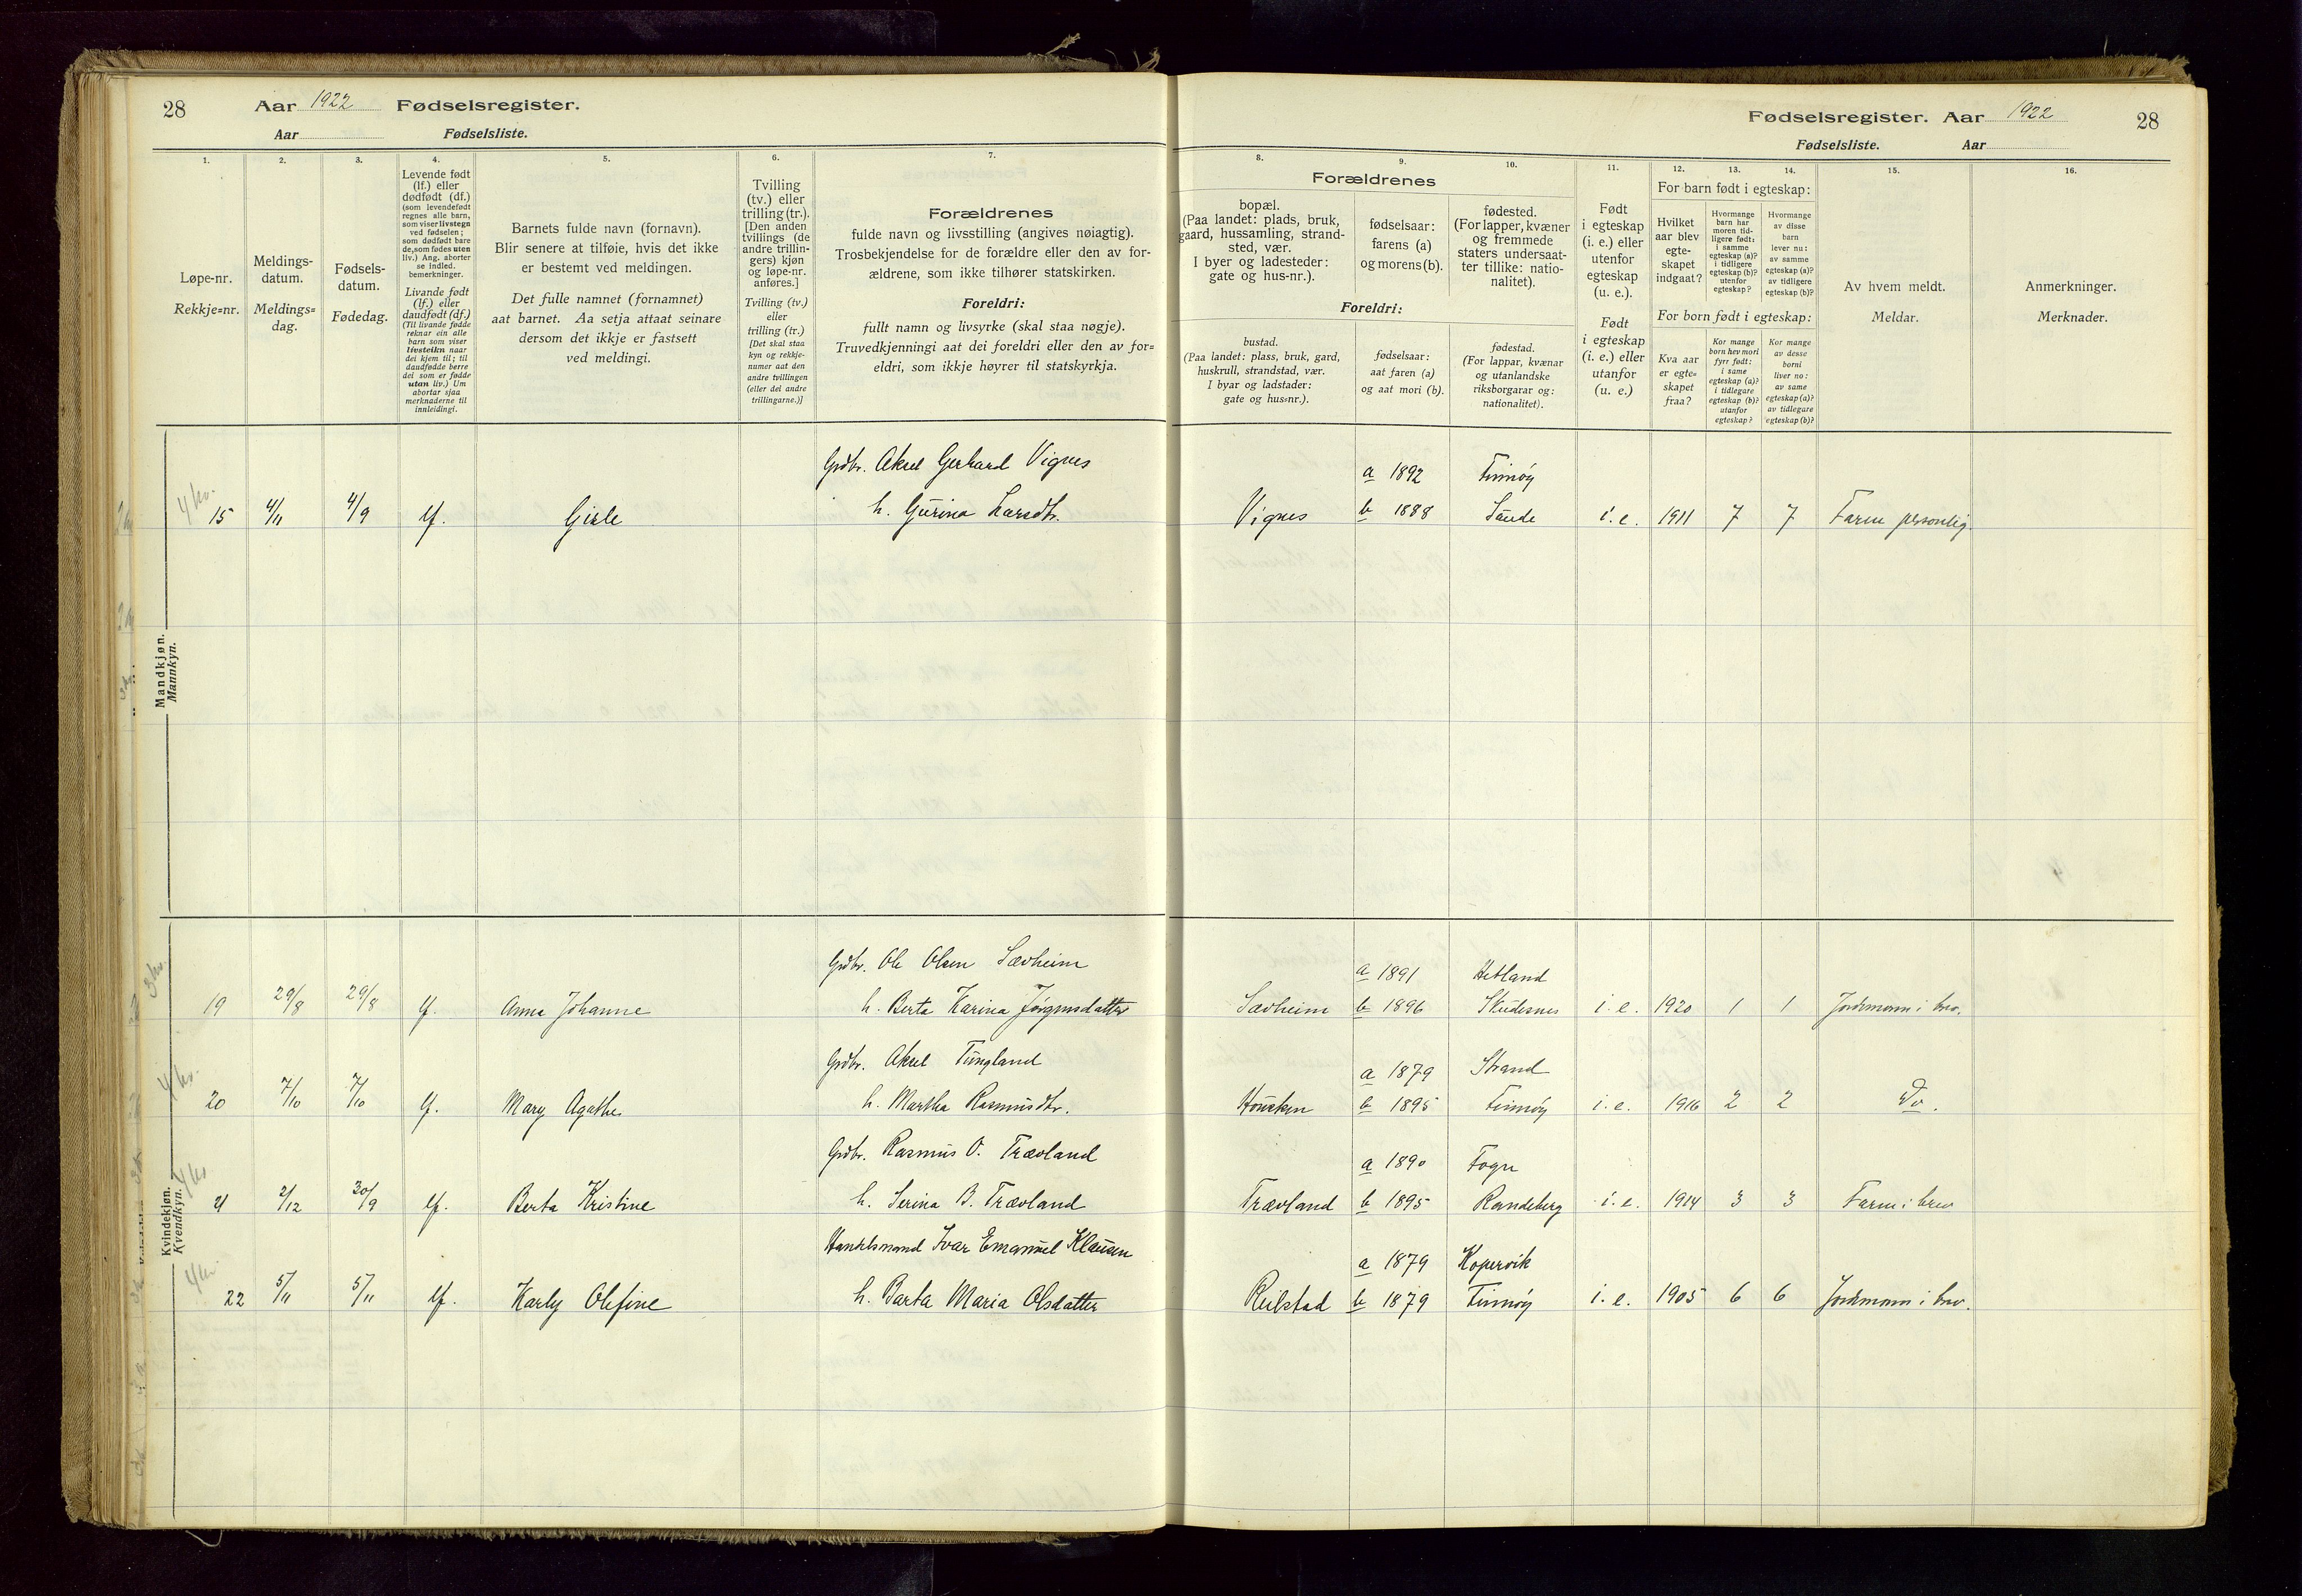 28
Aar 1922 Fødselsregister.
Aar Fødselsliste.
Fødselsregister. Aar 1922
28
Fødselsliste. Aar
1.
2.
3.
4.
5.
6.
7.
8.
9.
10.
11.
12.
13.
14.
15.
16.
Løpe-nr.
Rekkje=nr.
Meldings-
datum.
Meldings=
dag.
Fødsels-
datum.
Fødedag.
Levende født
(lf.) eller
dødfødt (df.)
(som levendefødt
regnes alle barn,
som viser livstegn
ved fødselen;
som dødfødt bare
de, som fødes uten
liv.) Ang. aborter
se indled.
bemerkninger.
Livande født
(lf.) eller
daudfødt (df.)
(Til livande fødde
reknar ein alle
barn som viser
livsteikn naar
dei kjem til; til
daudfødde berre
dei som er fødde
utan liv.) Um
abortar sjaa
merknaderne til
innleidingi.
Barnets fulde navn (fornavn).
Blir senere at tilføie, hvis det ikke
er bestemt ved meldingen.
Det fulle namnet (fornamnet)
aat barnet. Aa setja attaat seinare
dersom det ikkje er fastsett
ved meldingi.
Tvilling
(tv.) eller
trilling (tr.).
[Den anden
tvillings (de
andre trillin-
gers) kjøn
og løpe-nr.
anføres.]
Tvilling (tv.)
eller
trilling (tr.)
[Det skal staa
kyn og rekkje-
numer aat den
andre tvillingen
(eller dei andre
trillingarne.)]
Forældrenes
fulde navn og livsstilling (angives nøiagtig).
Trosbekjendelse for de forældre eller den av for-
ældrene, som ikke tilhører statskirken.
Foreldri:
fullt namn og livsyrke (skal staa nøgje).
Truvedkjenningi aat dei foreldri eller den av for=
eldri, som ikkje høyrer til statskyrkja.
Forældrenes
bopæl.
(Paa landet: plads, bruk,
gaard, hussamling, strand-
sted, vær.
I byer og ladesteder:
gate og hus-nr.).
fødselsaar:
farens (a)
og morens (b).
fødested.
(For lapper, kvæner
og fremmede
staters undersaat-
ter tillike: natio-
nalitet).
Foreldri:
bustad.
(Paa landet: plass, bruk, gard,
huskrull, strandstad, vær.
I byar og ladstader:
gate og hus=nr.).
fødselsaar:
aat faren (a)
og aat mori (b).
fødestad.
(For lappar, kvænar
og utanlandske
riksborgarar og:
nationalitet).
Født
i egteskap
(i. e.) eller
utenfor
egteskap
(u. e.).
Født
i egteskap
(i. e.) eller
utanfor
(u. e.)
For barn født i egteskap:
Hvilket
aar blev
egte-
skapet
indgaat?
Hvormange
barn har
moren tid-
ligere født:
i samme
egteskap (a)?
i tidligere
egteskap (b)?
utenfor
egteskap?
Hvormange
av disse
barn
lever nu:
av samme
egteskap (a)?
av tidligere
egteskap (b)?
For born født i egteskap:
Kva aar
er egte=
skapet
fraa?
Kor mange
born hev mori
fyrr født:
i same
egteskap (a)?
i tidlegare
egteskap (b)?
utanfor
egteskap?
Kor mange
av desse
borni
liver no:
av same
egteskap (a)?
av tidlegare
egteskap (b)?
Av hvem meldt.
Meldar.
Anmerkninger.
Merknader.
Mandkjøn.
Mannkyn.
Grdbr. Aksel Gerhard Vignes
a 1892 Finnøy
4 kr.
15 4/11 4/9 lf. Gisle h. Gurina Larsdtr. Vignes b 1888 Saude i. e. 1911 7 7 Faren personlig.
Kvindekjøn.
Kvendkyn.
Grdbr. Ole Olsen Sævheim
a 1891 Hetland
3 kr.
19 29/8 29/8 lf. Anna Johanne h. Berta Karina Jørgensdatter Sævheim b 1896 Skudesnes i. e. 1920 1 1 Jordmoren i brev.
Grdbr. Aksel Tungland
a 1879 Strand
4 kr.
20 7/10 7/10 lf. Mary Agathe h. Martha Rasmusdtr. Hausken b 1895 Finnøy i. e. 1916 2 2 Do.
Grdbr. Rasmus O. Trævland
a 1890 Fogn
4 kr
21 2/12 30/9 lf. Berta Kristine h. Serina B. Trævland Trævland b 1895 Randeberg i. e. 1914 3 3 Faren i brev
Handelsmand Ivar Emanuel Klausen
a 1879 Kopervik
4 kr.
22 5/11 5/11 lf. Karly Olefine h. Barta Maria Olsdatter Reilstad b 1879 Finnøy i. e. 1905 6 6 Jordmoren i brev.